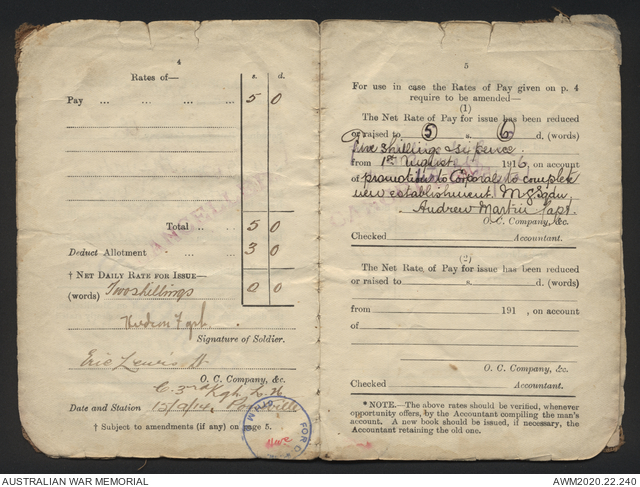 4
Rates of—
s. d.
Pay ... ... ... ... 5 0
Total .. .. 5 0
Deduct Allotment .. 3 0
† NET DAILY RATE FOR ISSUE—
(words) Two shillings 0 0
Signature of Soldier.
Eric Lewis
O. C. Company, &c.
C. 3rd L. H.
Date and Station
† Subject to amendments (if any) on page 5.
CANCELLED
5
For use in case the Rates of Pay given on p. 4
require to be amended—
(1)
The Net Rate of Pay for issue has been reduced
or raised to 5 s. 6 d. (words)
five shillings & sixpence
from 1st August 1916, on account
of promotion to Corporal to complete
new establishment. M G Sqdn.
Andrew Martin Capt.
O. C. Company, &c.
Checked Accountant.
(2)
The Net Rate of Pay for issue has been reduced
or raised to s. d.
from 191 , on account
of
O. C. Company, &c.
Checked Accountant.
* NOTE.—The above rates should be verified, whenever
opportunity offers, by the Accountant compiling the man's
account. A new book should be issued, if necessary, the
Accountant retaining the old one.
AUSTRALIAN WAR MEMORIAL
AWM2020.22.240